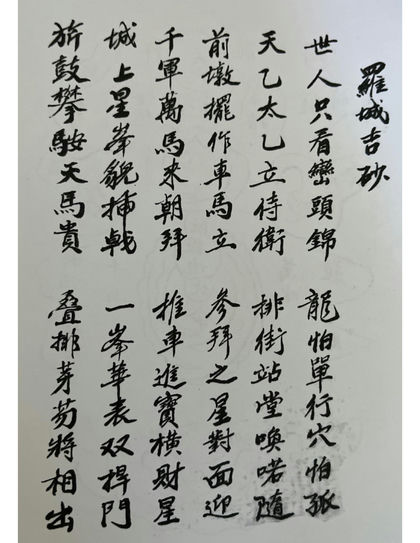 羅城吉砂
世人只看巒頭錦 龍怕單行穴怕孤
天乙太乙立待衛 排街站堂喚喏隨
前墩擺作車馬立 參拜之星對面迎
千軍萬馬來朝拜 推車進寶橫財星
城上星峯貌插戟 一峯華表双捍門
旂鼓攀鞍天馬貴 叠排芽笏將相出